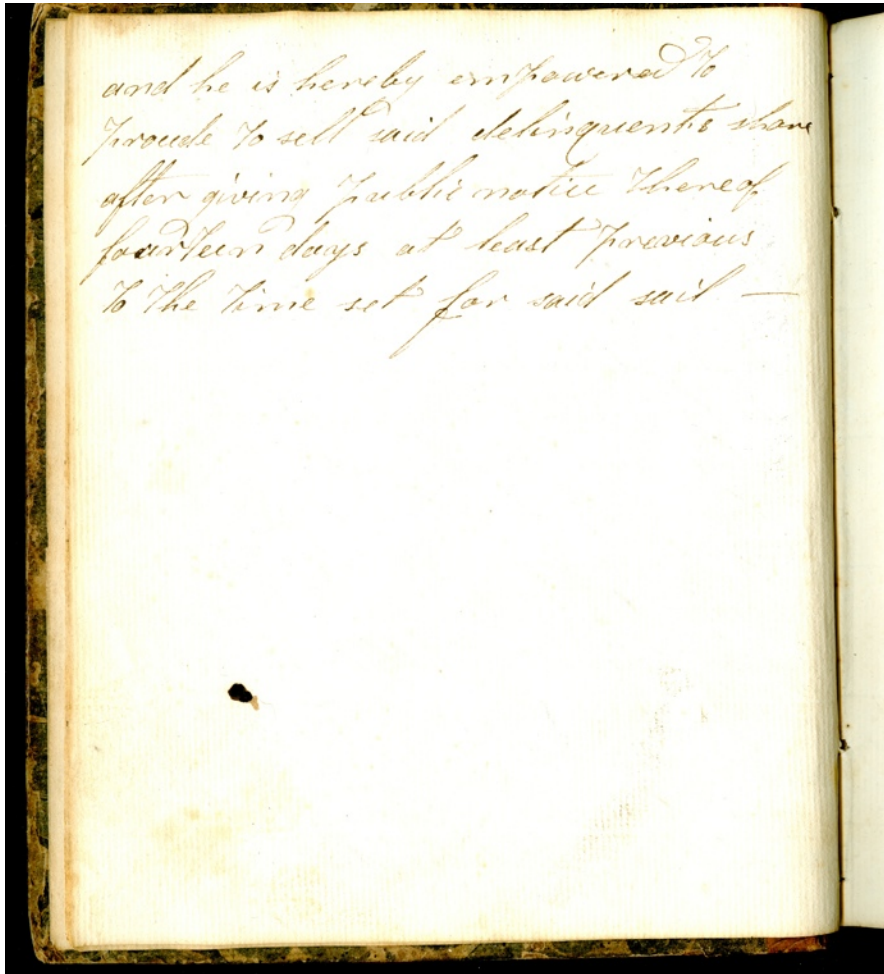 and he is hereby empowered to
proude to sell said delinquents share
after giving public notice thereof
fourteen days at least previous
to the time set for said sail —